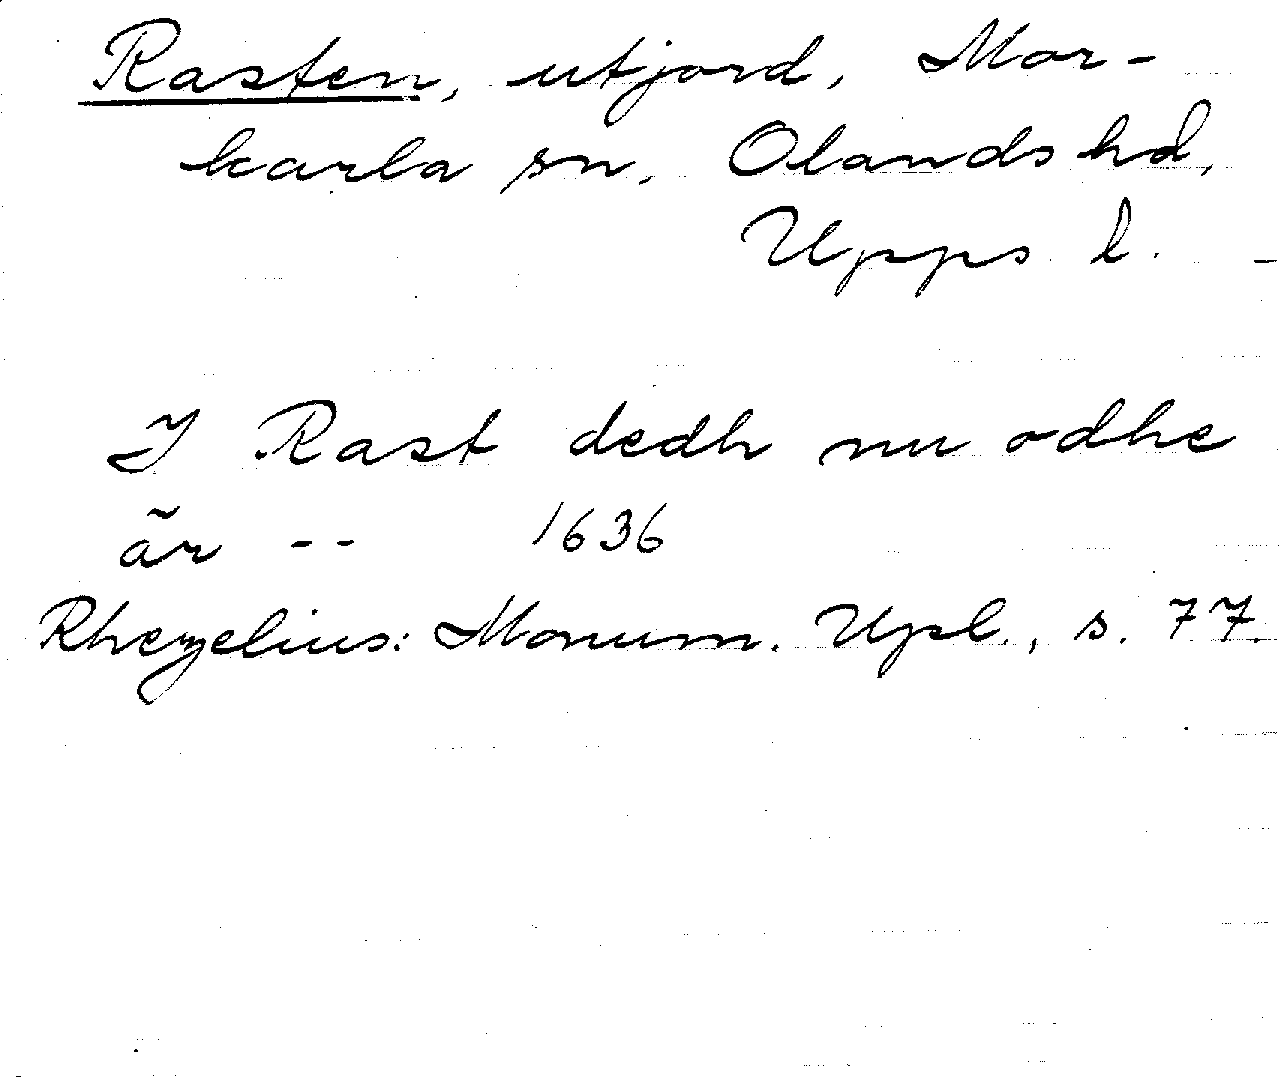 Rasten, utjord, Mor-
karla sn. Olands hd,
Upps l.
I Rast dedh nu odhe
är -- 1636
Rhezelius: Monum. Upl., s. 77.